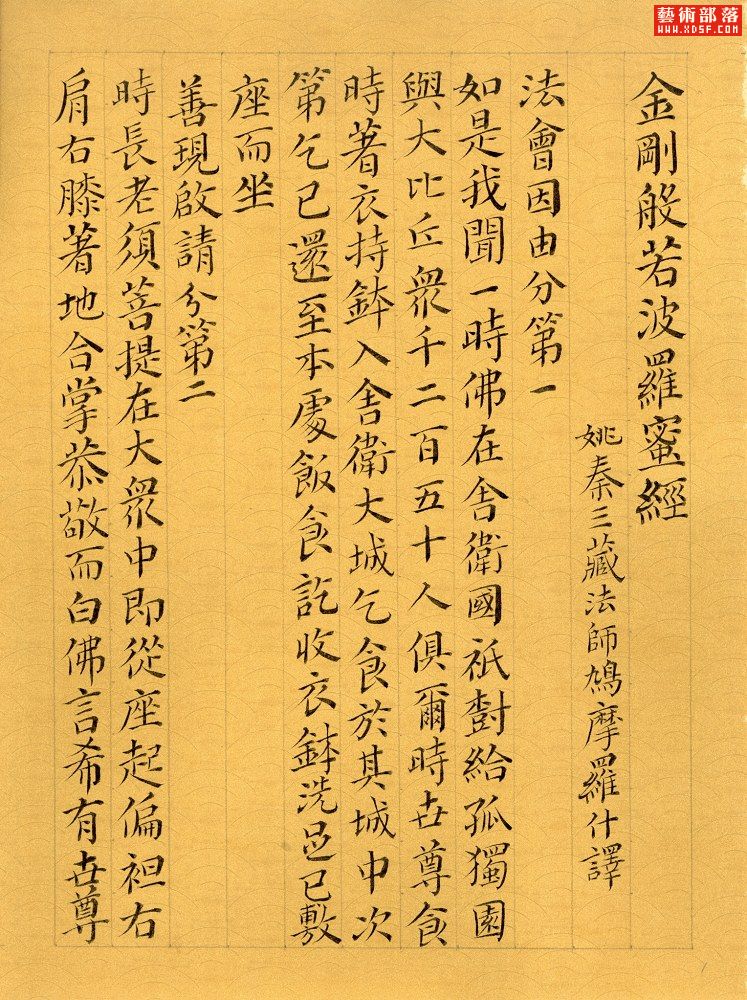 金剛般若波羅蜜經
姚秦三藏法師鳩摩羅什譯
法會因由分第一
如是我聞一時佛在舍衛國祇樹給孤獨園
與大比丘衆千二百五十人俱爾時世尊食
時著衣持鉢入舍衛大城乞食於其城中次
第乞已還至本處飯食訖收衣鉢洗足已敷
座而坐
善現啟請分第二
時長老須菩提在大衆中即從座起偏袒右
肩右膝著地合掌恭敬而白佛言希有世尊
藝術部落
WWW.XDSF.COM